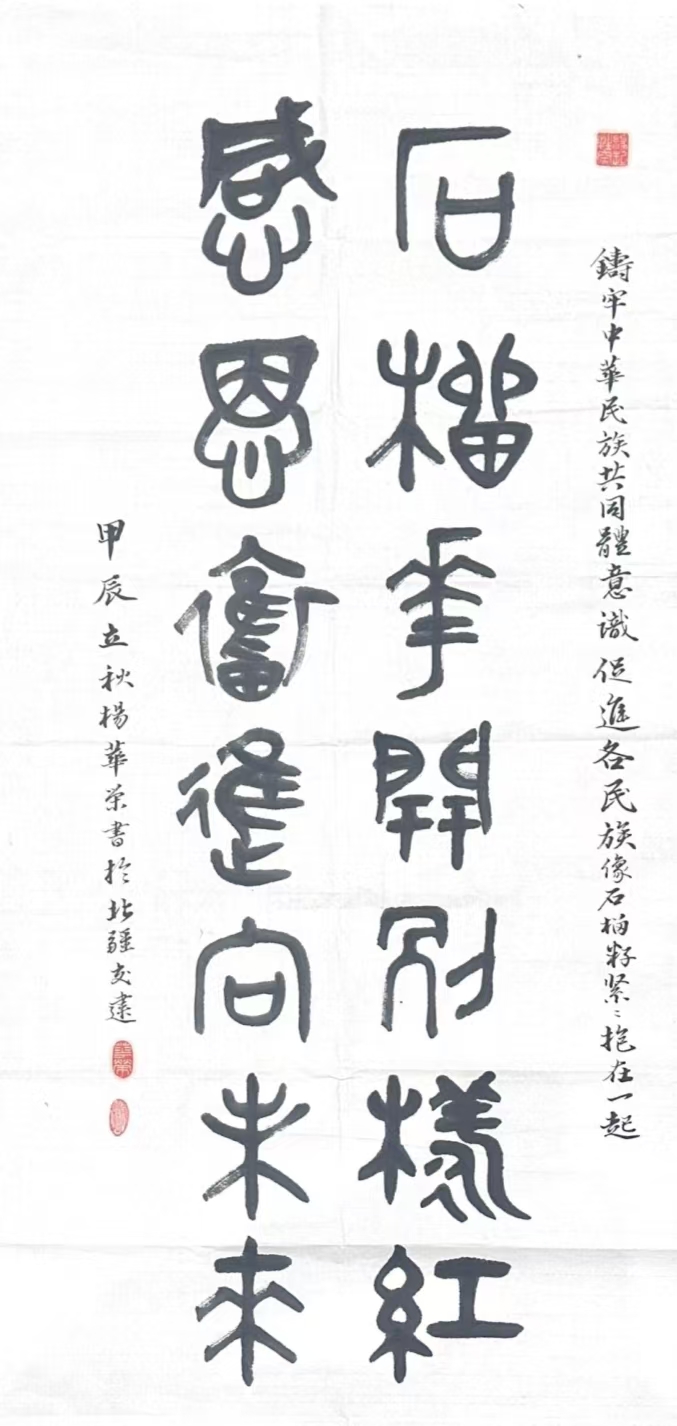 鑄牢中華民族共同體意識促進各民族像石榴籽緊〻抱在一起
石榴花開別樣紅
感恩奮進向未來
甲辰立秋楊華荣書於北疆支建